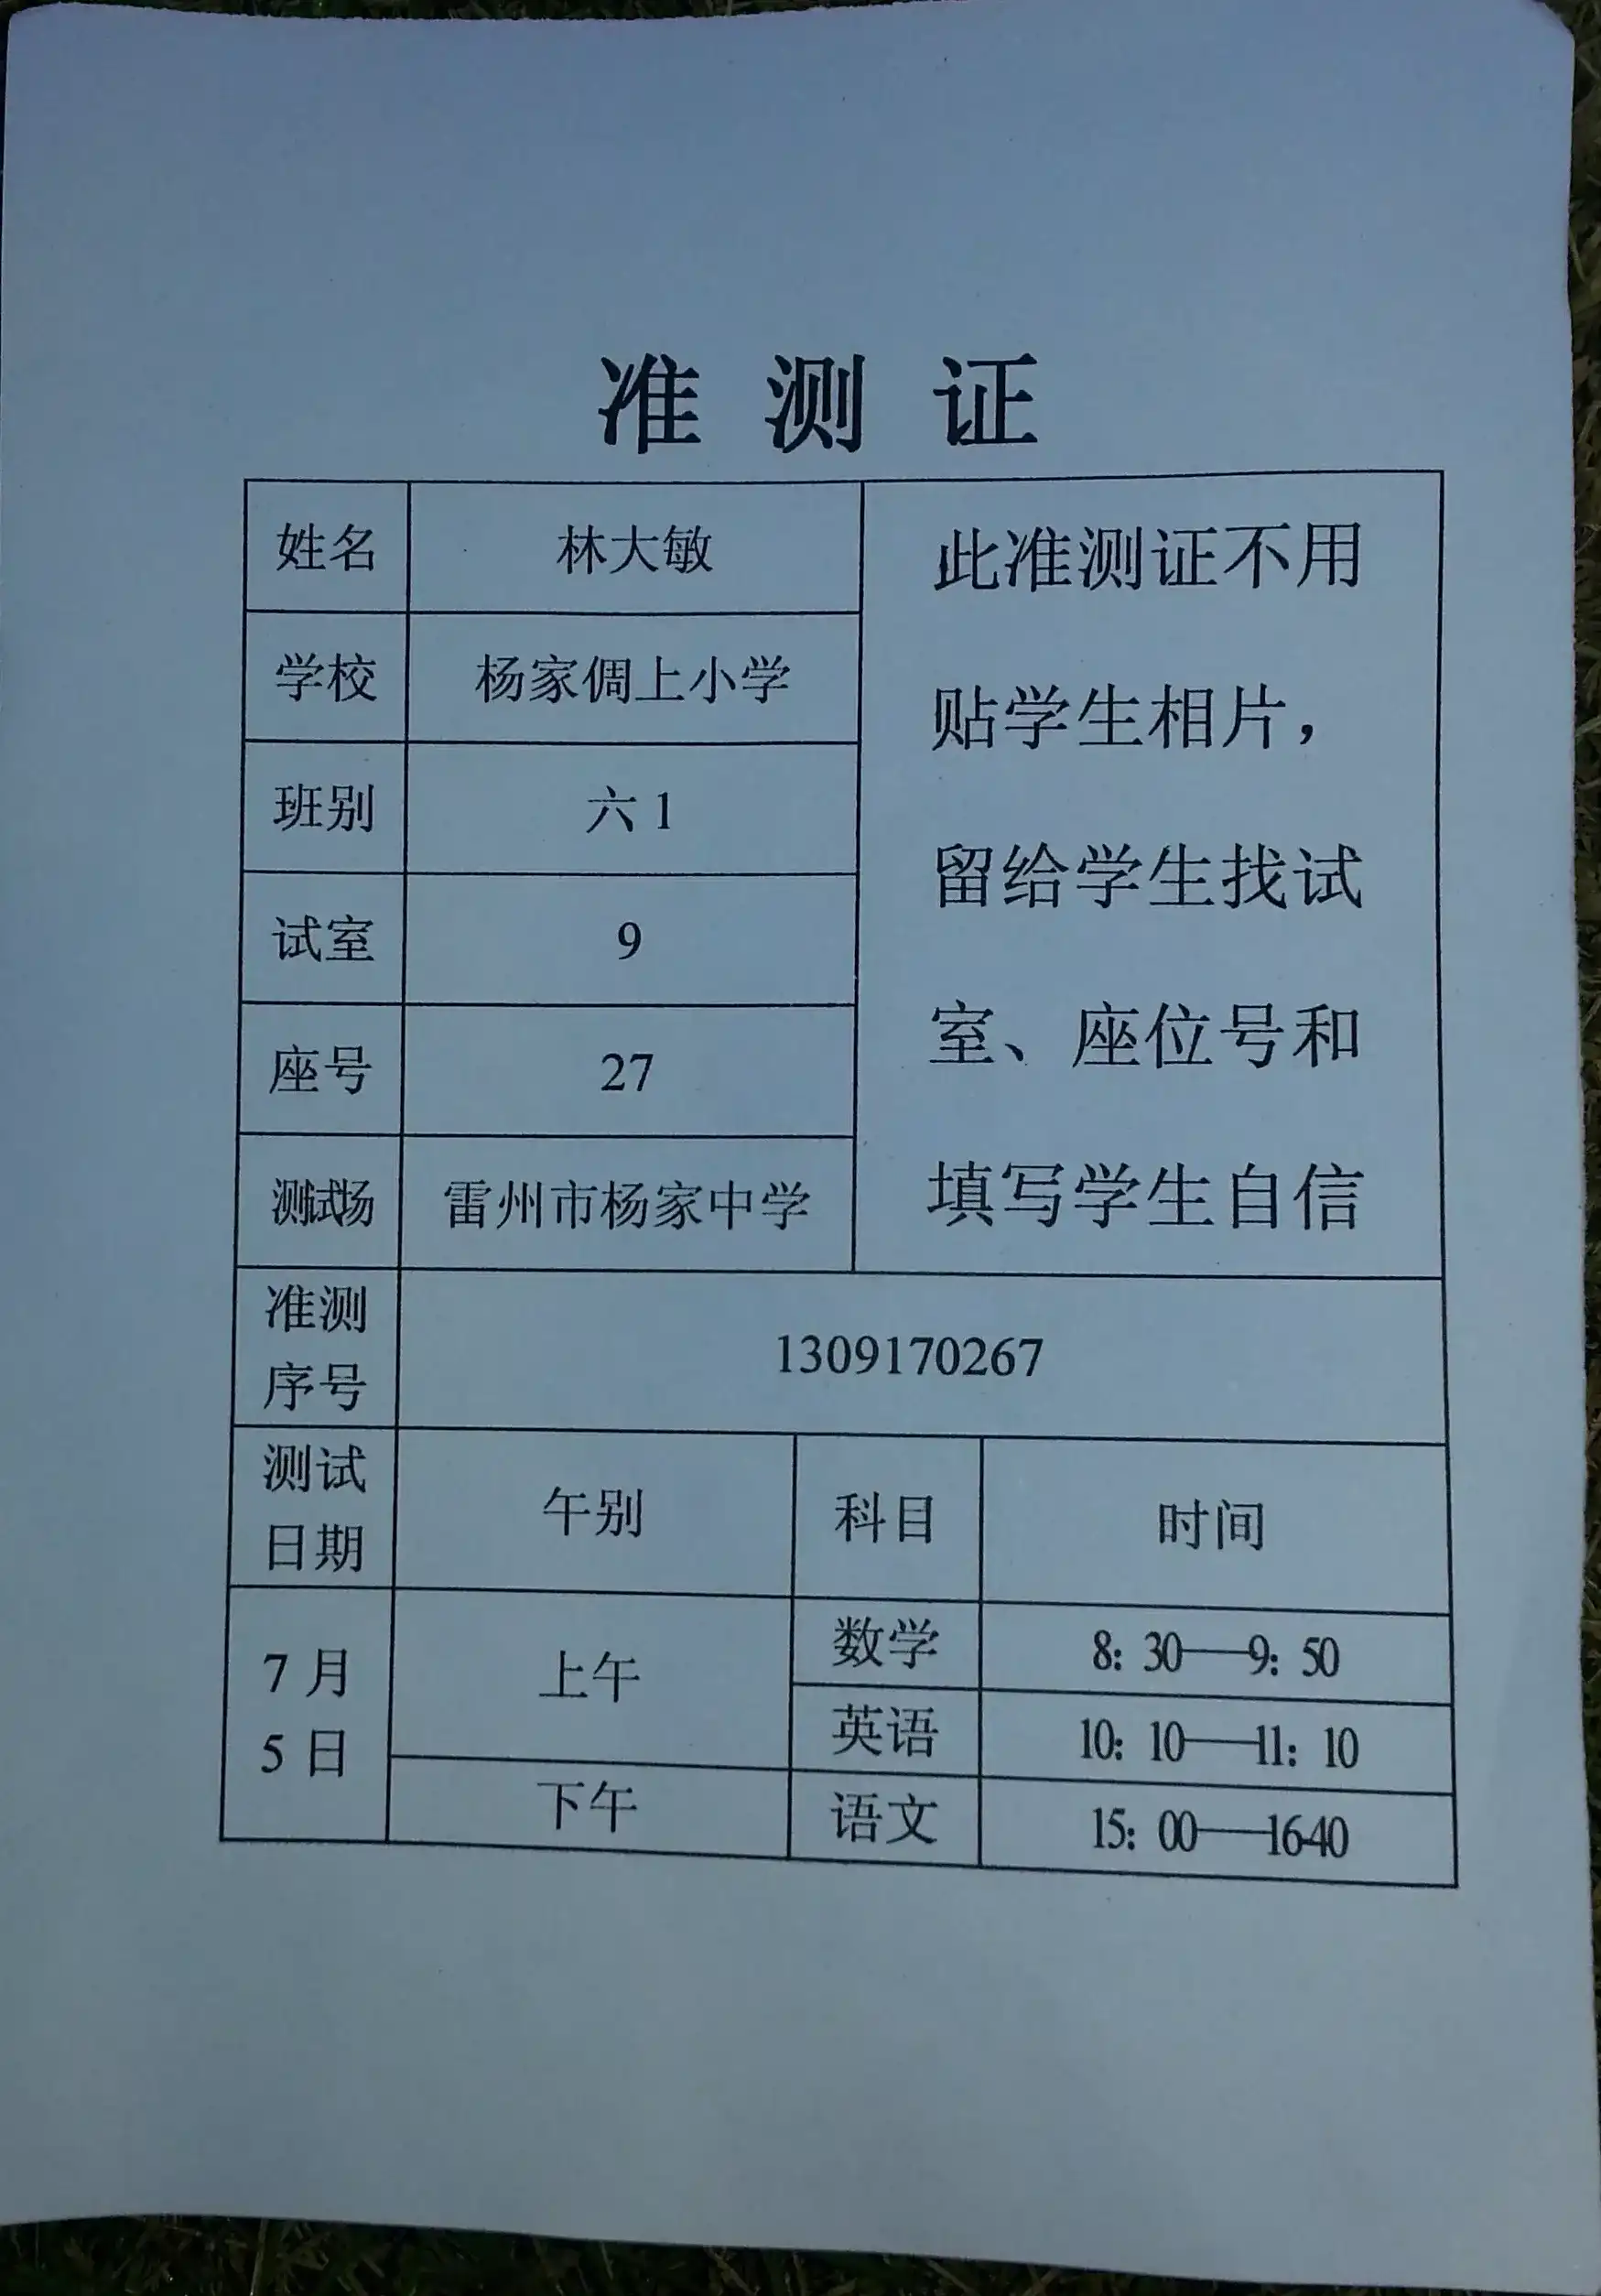 准 测 证
姓名 林大敏
学校 杨家倜上小学
班别 六 1
试室 9
座号 27
测试场 雷州市杨家中学
此准测证不用
贴学生相片，
留给学生找试
室、座位号和
填写学生自信
准测
序号
1309170267
测试
日期
午别 科目 时间
7 月
5 日
上午 数学 8：30——9：50
英语 10：10——11：10
下午 语文 15：00——1640